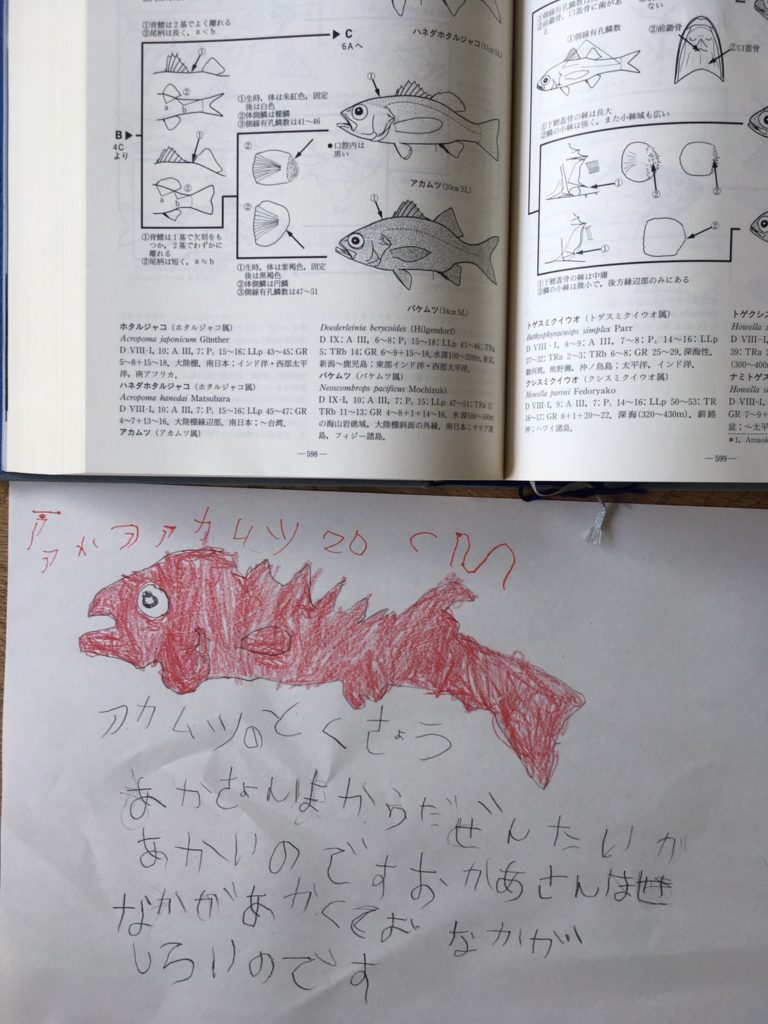 ①背鰭は2基でよく離れる
②尾柄は長く，a＜b
C
6Aへ
ハネダホタルジャコ(13cm SL)
①
②
a
b
B
4C
より
①背鰭は1基で欠刻をも
つか，2基でわずかに
離れる
②尾柄は短く，a≒b
①生時，体は朱紅色，固定
後は白色
②体側鱗は櫛鱗
③側線有孔鱗数は41～46
②
●口腔内は
黒い
①
アカムツ(20cm SL)
①生時，体は紫褐色，固定
後は黒褐色
②体側鱗は円鱗
③側線有孔鱗数は47～51
バケムツ(34cm SL)
ホタルジャコ（ホタルジャコ属）
Acropoma japonicum Günther
D VIII-I, 10; A III, 7; P₁ 15～16; LLp 43～45; GR
5～8＋15～18. 大陸棚，南日本；インド洋・西部太平
洋，南アフリカ．
ハネダホタルジャコ（ホタルジャコ属）
Acropoma hanedai Matsubara
D VIII-I, 10; A III, 7; P₁ 15～16; LLp 45～47; GR
4～7＋13～16. 大陸棚縁辺部，南日本；～台湾．
アカムツ（アカムツ属）
Doederleinia berycoides (Hilgendorf)
D IX; A III, 6～8; P₁ 15～18; LLp 41～46; TRa
5; TRb 14; GR 6～9＋15～18. 水深100～200m，
新潟～鹿児島；東部インド洋・西部太平洋．
バケムツ（バケムツ属）
Neoscombrops pacificus Mochizuki
D IX-I, 10; A III, 7; P₁ 15～17; LLp 47～51; TRa
TRb 11～13; GR 4～8＋1＋14～16. 水深100～500m
の海山岩礁域，大陸棚斜面の外縁，南日本；サモア諸
島，フィジー諸島．
―598―
①側線有孔鱗数
②前鋤骨
②口蓋骨
①下鰓蓋骨の棘は長大
②鱗の小棘は強く，また小棘域も広い
①下鰓蓋骨の棘は中庸
②鱗の小棘は微小で，後方縁辺部のみにある
トゲスミクイウオ（トゲスミクイウオ属）
Bathysphyraenops simplex Parr
D VIII-I, 8～9; A III, 7～8; P₁ 14～16; LLp
27～32; TRa 2～3; TRb 6～8; GR 25～29. 深海性，
駿河湾，熊野灘，沖ノ鳥島；太平洋，インド洋．
クシスミクイウオ（クシスミクイウオ属）
Howella parini Fedoryako
D VIII-I, 9; A III, 7; P₁ 14～16; LLp 50～53; TR
16～17; GR 8＋1＋20～22. 深海(320～430m)，釧路
沖；ハワイ諸島．
トゲクシス
Howella z
39; TRa
(300～400
ナミトゲク
Howella s
GR 7～9＋
盆；～太平
*1. Amaok
―599―
アカムツ 20 cm
アカムツのとくちょう
あかさょんはからだぜんたいが
あかいのですおかあさんは
なかがあかくておなかが
しろいのです